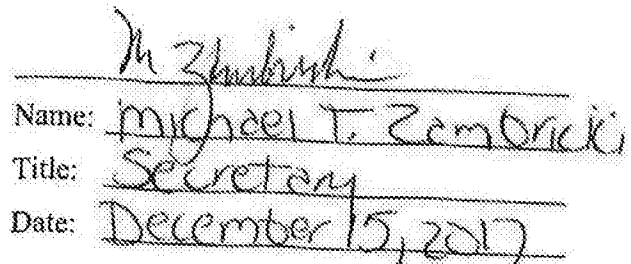 M Zambricki
Name: Michael T. Zambricki
Title: Secretary
Date: December 15, 2017